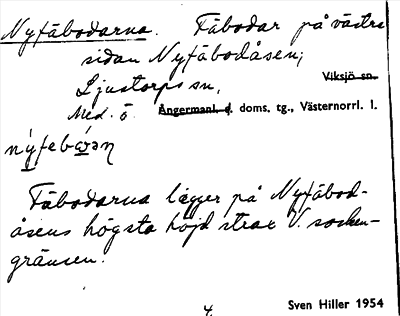 Nyfäbodarna. Fäbodar på västra
sidan Nyfäbodåsen;
Ljustorps sn, Viksjö sn.
Med. ö. Ångermanl. d. doms. tg., Västernorrl. l.
nýfebωən
Fäbodarna ligger på Nyfäbod-
åsens högsta höjd strax V. socken-
gränsen.
4. Sven Hiller 1954